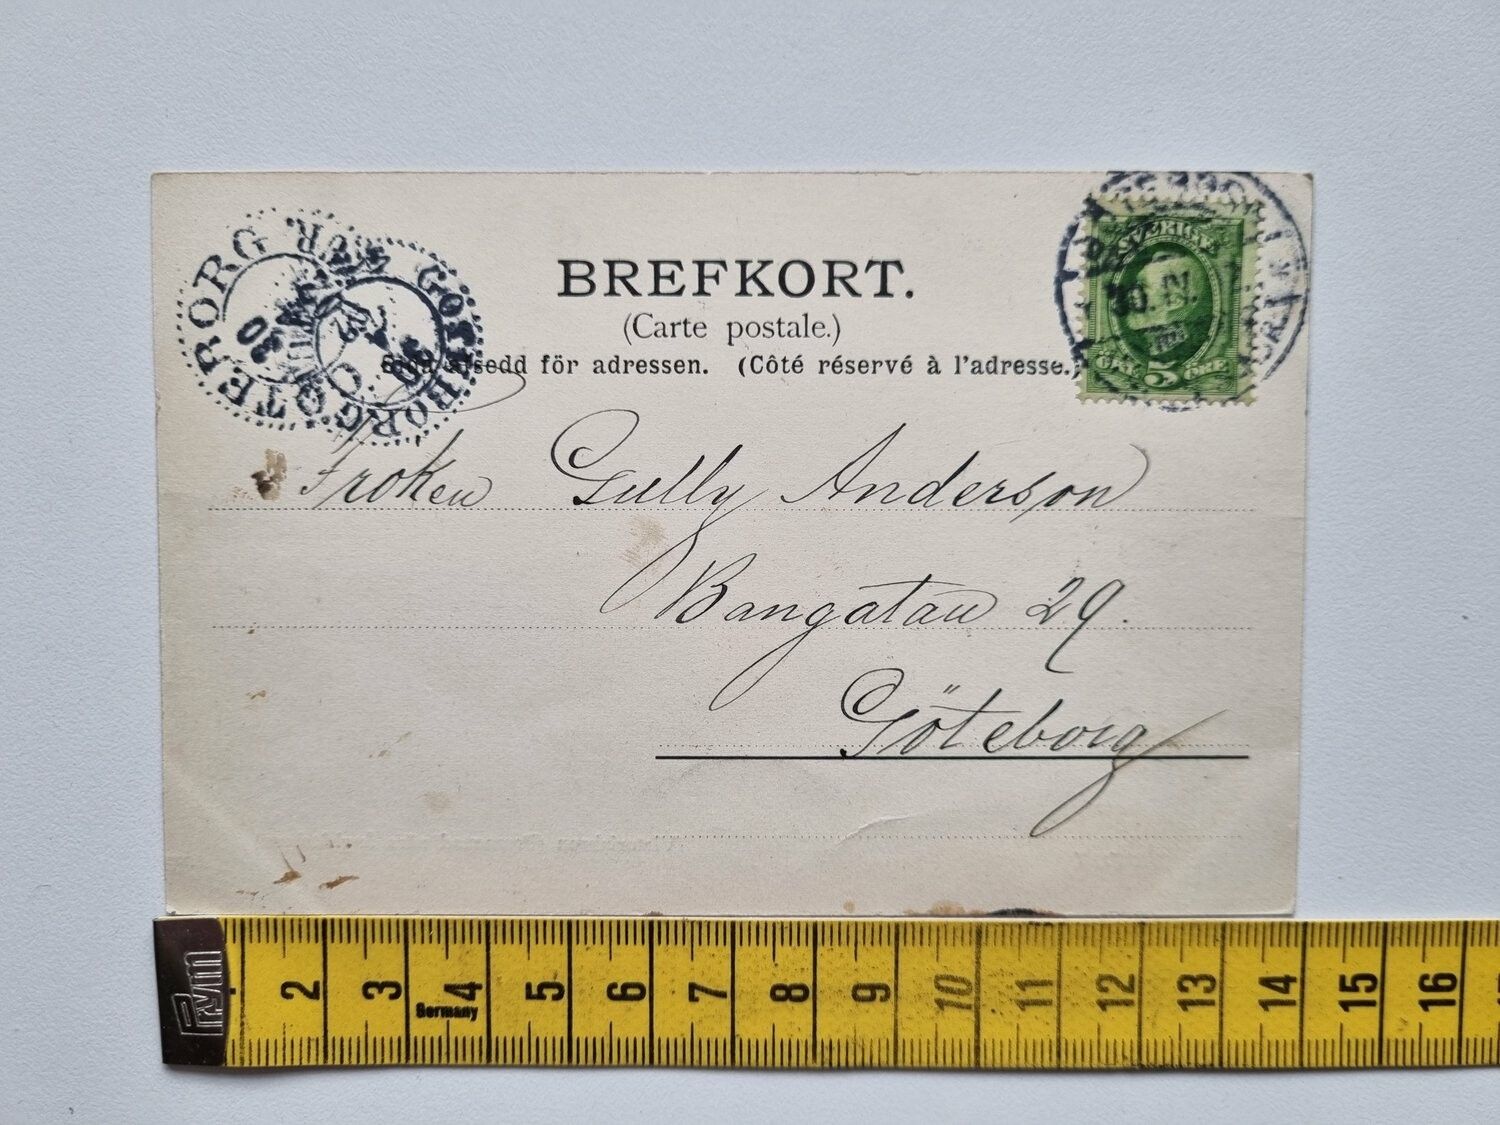 BREFKORT.
(Carte postale.)
Sida afsedd för adressen. (Côté réservé à l'adresse.)
GÖTEBORG
GÖTEBORG
SVERIGE
30. IV.
5 ÖRE
Fröken Gully Anderson
Bangatan 29.
Göteborg
Prym
2 3 4 5 6 7 8 9 10 11 12 13 14 15 16
Germany